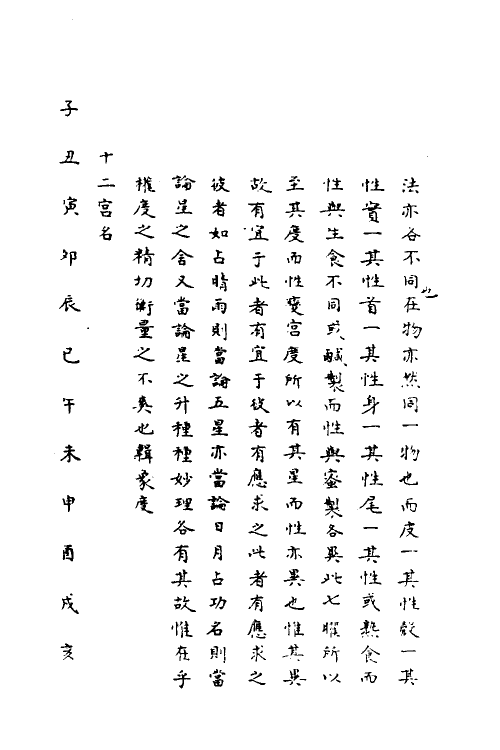 法亦各不同也在物亦然同一物也而皮一其性殼一其
性實一其性首一其性身一其性尾一其性或熱食而
性與生食不同或鹹製而性與蜜製各異此七曜所以
至其度而性變宮度所以有其星而性亦異也惟其異
故有宜于此者有宜于彼者有應求之此者有應求之
彼者如占晴雨則當論五星亦當論日月占功名則當
論星之舍又當論星之升種種妙理各有其故惟在乎
權度之精切衡量之不爽也輯象度
十二宮名
子丑寅卯辰巳午未申酉戌亥